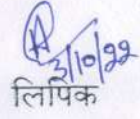 3/10/22
लिपिक